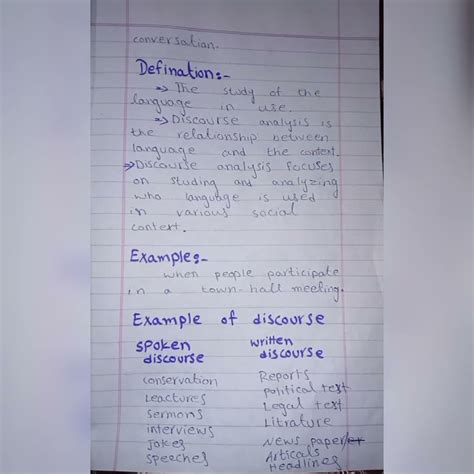 conversation.
Defination:-
=> The study of the
language in use.
=> Discourse analysis is
the relationship between
language and the context.
=> Discourse analysis focuses
on studing and analyzing
who language is used
in various social
context.
Example:-
when people participate
in a town-hall meeting.
Example of discourse
spoken discourse
written discourse
conservation
Leactures
Sermons
interviews
Jokes
speeches
Reports
political text
Legal text
Litrature
News paper
Articals
Headlines